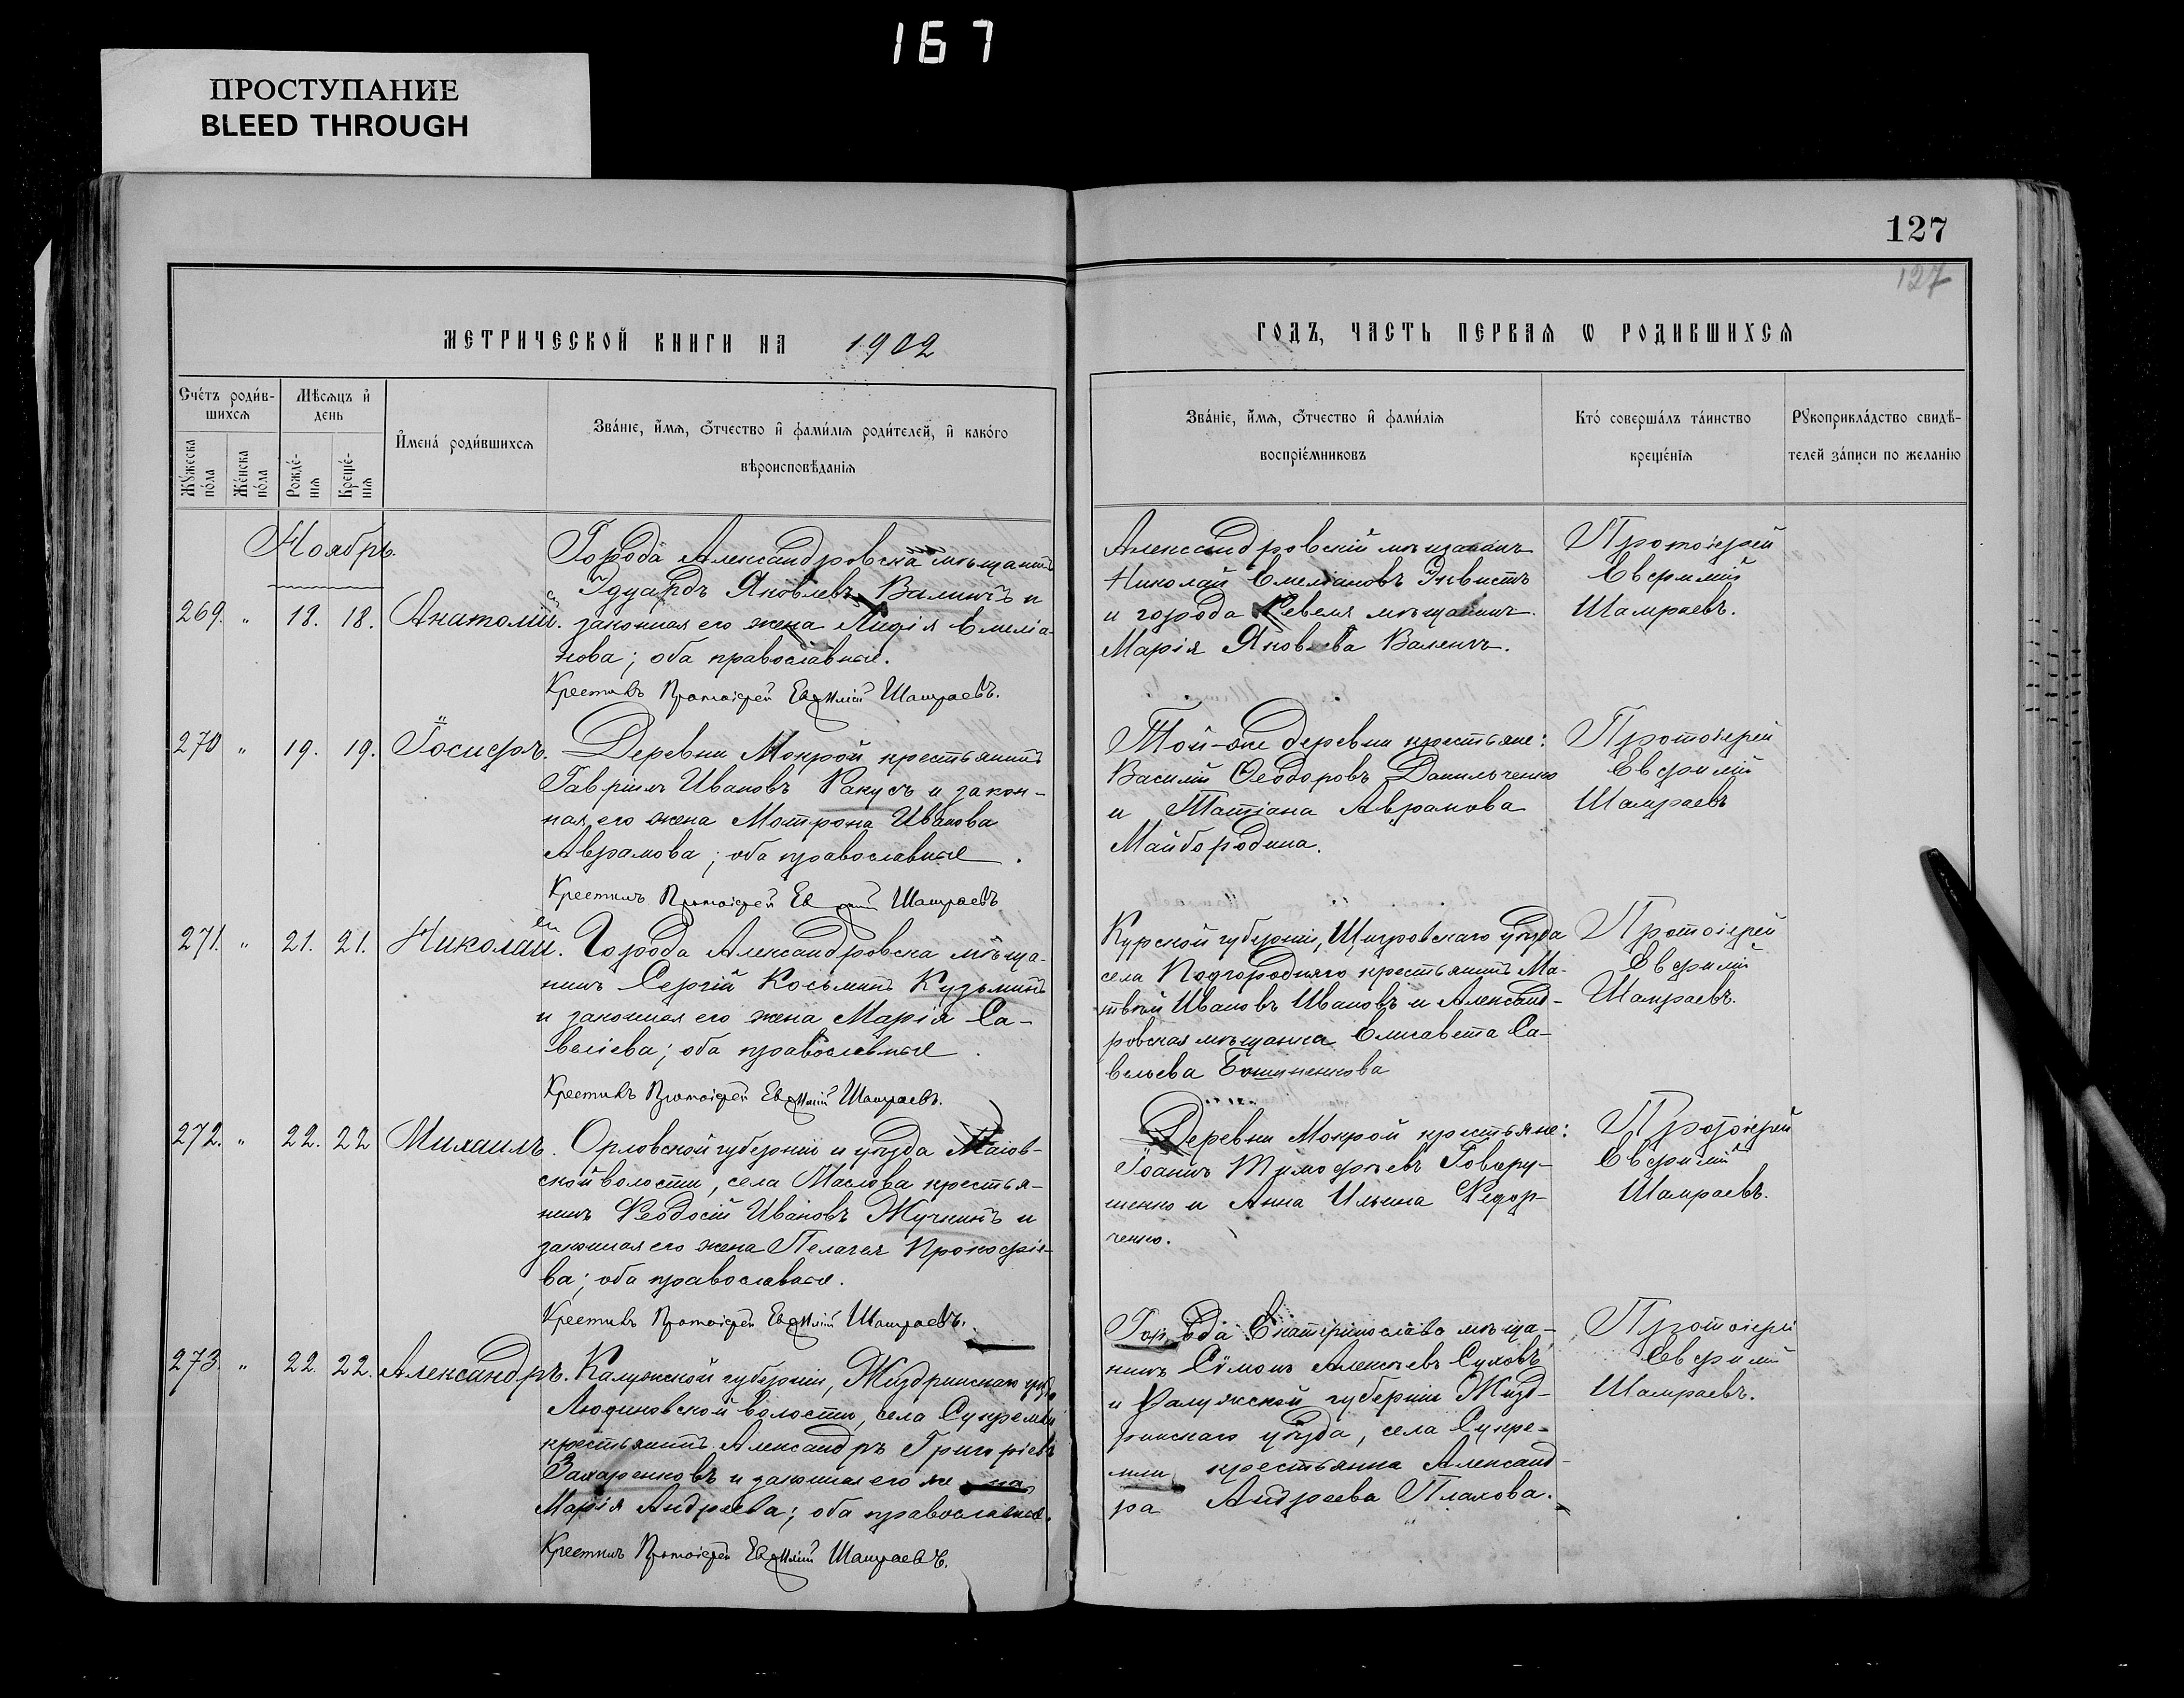 167
ПРОСТУПАНИЕ
BLEED THROUGH
127
127
МЕТРИЧЕСКОЙ КНИГИ НА 1902
ГОДЪ, ЧАСТЬ ПЕРВАЯ Ѡ РОДИВШИХСЯ
Счéтъ роди́в-
шихся
Мѣ́сяцъ и҆
день
Мꙋ́жеска
по́ла
Же́нска
по́ла
Рожде́-
нїя
Креще́-
нїя
И҆мена̀ роди́вшихся
Зва́нїе, и҆́мя, ѻ҆́тчество и҆ фами́лїя роди́телей, и҆ како́го
вѣроисповѣ́данїя
Зва́нїе, и҆́мя, ѻ҆́тчество и҆ фами́лїя
воспрїе́мниковъ
Кто̀ соверша́лъ та́инство
креще́нїя
Рꙋкоприкла́дство свидѣ́-
телей за́писи по жела́нїю
Ноябрь.
269. " 18. 18. Анатолій.
Города Александровска мѣщанинъ
Эдуардъ Яковлевъ Валентъ и
законная его жена Лидія Емеліа-
нова; оба православные.
Крестилъ Протоіерей Евѳимій Шамраевъ.
Александровскій мѣщанинъ
Николай Емеліановъ Эквистъ
и города Ревеля мѣщанинъ
Марія Яковлева Валентъ.
Протоіерей
Евфимій
Шамраевъ.
270 " 19. 19. Іосифъ.
Деревни Мокрой крестьянинъ
Гавріилъ Ивановъ Ракусъ и закон-
ная его жена Мотрона Иванова
Аврамова; оба православные.
Крестилъ Протоіерей Шамраевъ
Той-же деревни крестьяне:
Василій Ѳеодоровъ Данильченко
и Татіана Аврамова
Майбородина.
Протоіерей
Евфимій
Шамраевъ
271. " 21. 21. Николай.
Города Александровска мѣща-
нинъ Сергій Косьминъ Кузьминъ
и законная его жена Марія Са-
веліева; оба православные.
Крестилъ Протоіерей Евѳимій Шамраевъ.
Курской губерніи, Щигровскаго уѣзда
села Подгородняго крестьянинъ Ма-
твѣй Ивановъ Ивановъ и Александ-
ровская мѣщанка Елисавета Са-
вельева
Протоіерей
Евфимій
Шамраевъ.
272. " 22. 22 Михаилъ.
Орловской губерніи и уѣзда
ской волости, села Маслова крестья-
нинъ Ѳеодосій Ивановъ Жучкинъ и
законная его жена Пелагея Прокофіе-
ва; оба православные.
Крестилъ Протоіерей Евѳимій Шамраевъ.
Деревни Мокрой крестьяне:
Іоаннъ Тимофѣевъ Говору-
шенко и Анна Ильина Ѳедор-
ченко.
Протоіерей
Евфимій
Шамраевъ.
273. " 22. 22. Александръ.
Калужской губерніи, Жиздринскаго уѣзда
Людиновской волости, села Сукремли
крестьянинъ Александръ Григоріевъ
Захаренковъ и законная его жена
Марія Андреева; оба православные.
Крестилъ Протоіерей Евѳимій Шамраевъ.
Города Екатеринослава мѣща-
нинъ Сѵмонъ Алексѣевъ Суховъ
и Калужской губерніи Жизд-
ринскаго уѣзда, села Сукре-
мли крестьянка Александ-
ра Андреева Плахова.
Протоіерей
Евфимій
Шамраевъ.